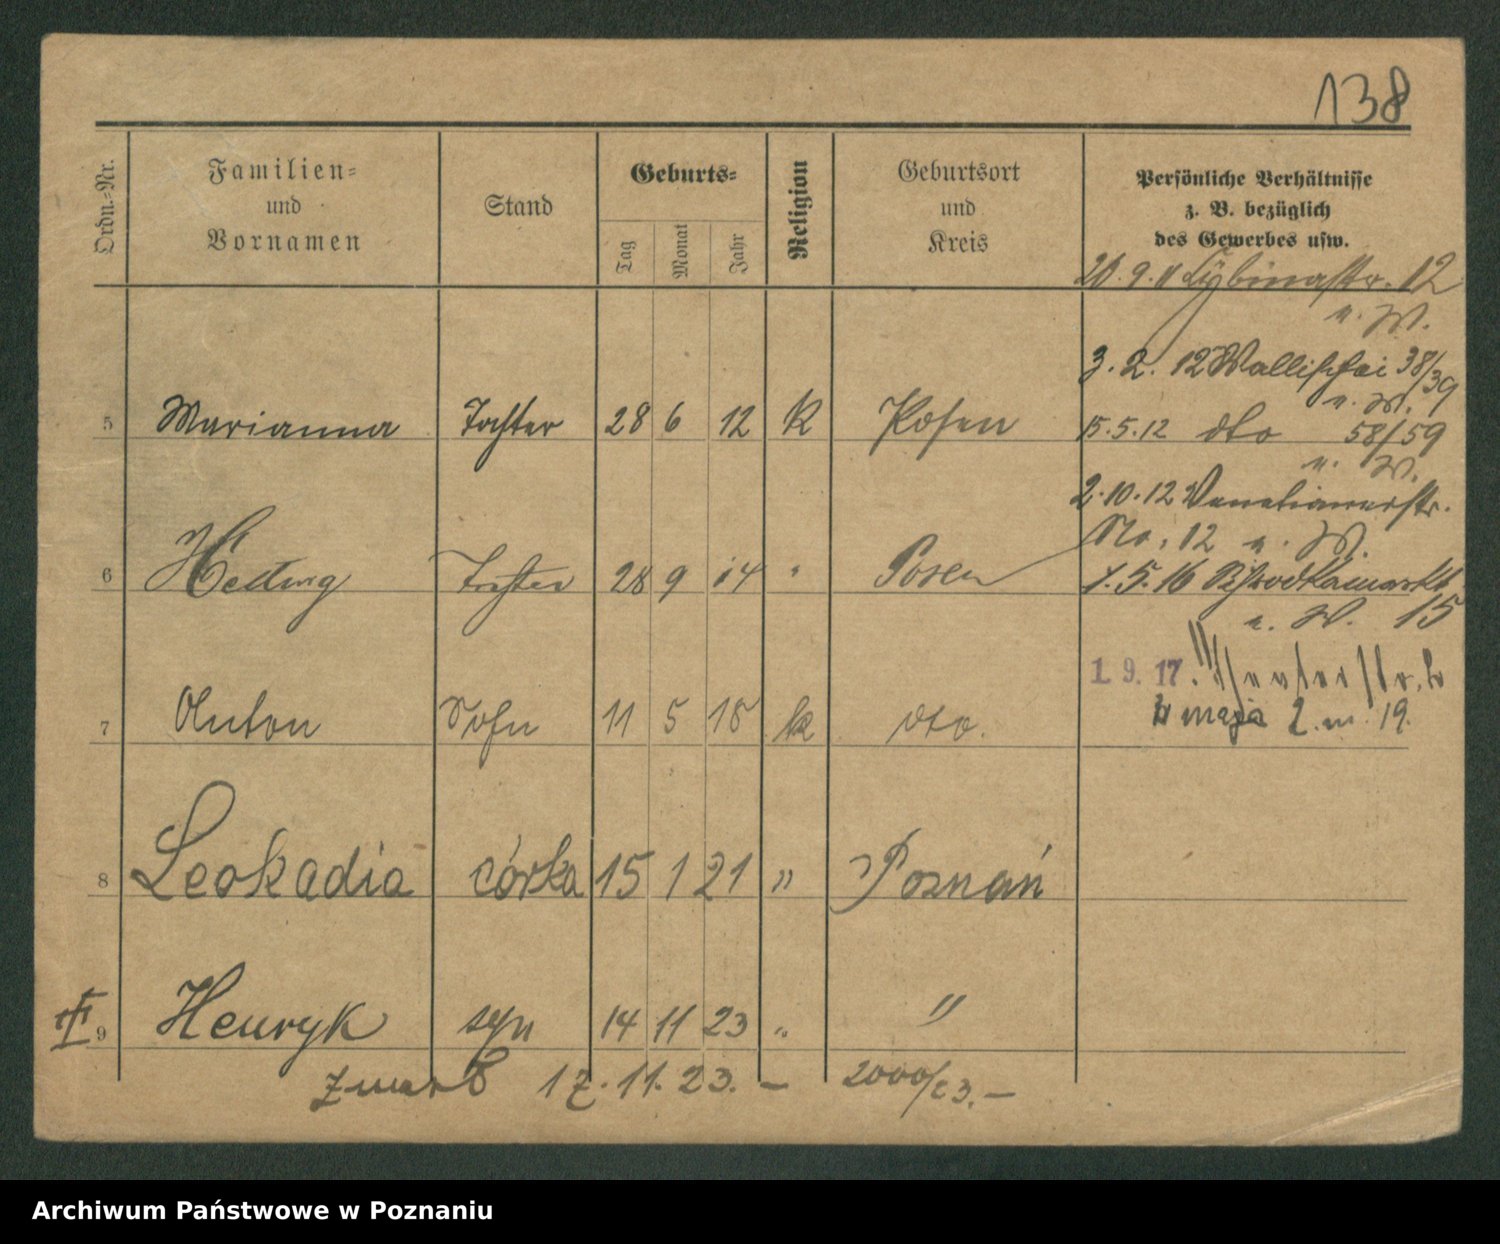 138
Ordn.-Nr.
Familien-
und
Vornamen
Stand
Geburts-
Tag
Monat
Jahr
Religion
Geburtsort
und
Kreis
Persönliche Verhältnisse
z. B. bezüglich
des Gewerbes usw.
20. 9. 11 Cybinastr. 12
n. W.
3. 2. 12 Wallischei 38/39
n. W.
5 Marianna Tochter 28 6 12 k Posen
15. 5. 12 dto 58/59
n. W.
2. 10. 12 Venetianerstr.
No. 12 n. W.
6 Hedwig Tochter 28 9 14 " Posen
1. 5. 16 Schrodkamarkt
n. W. 15
1. 9. 17.
7 Anton Sohn 11 5 18 k dto.
3 maja 2. 19.
8 Leokadia córka 15 1 21 " Poznań
III
9 Henryk syn 14 11 23 " "
zmarł 17. 11. 23. – 2000/23. –
Archiwum Państwowe w Poznaniu